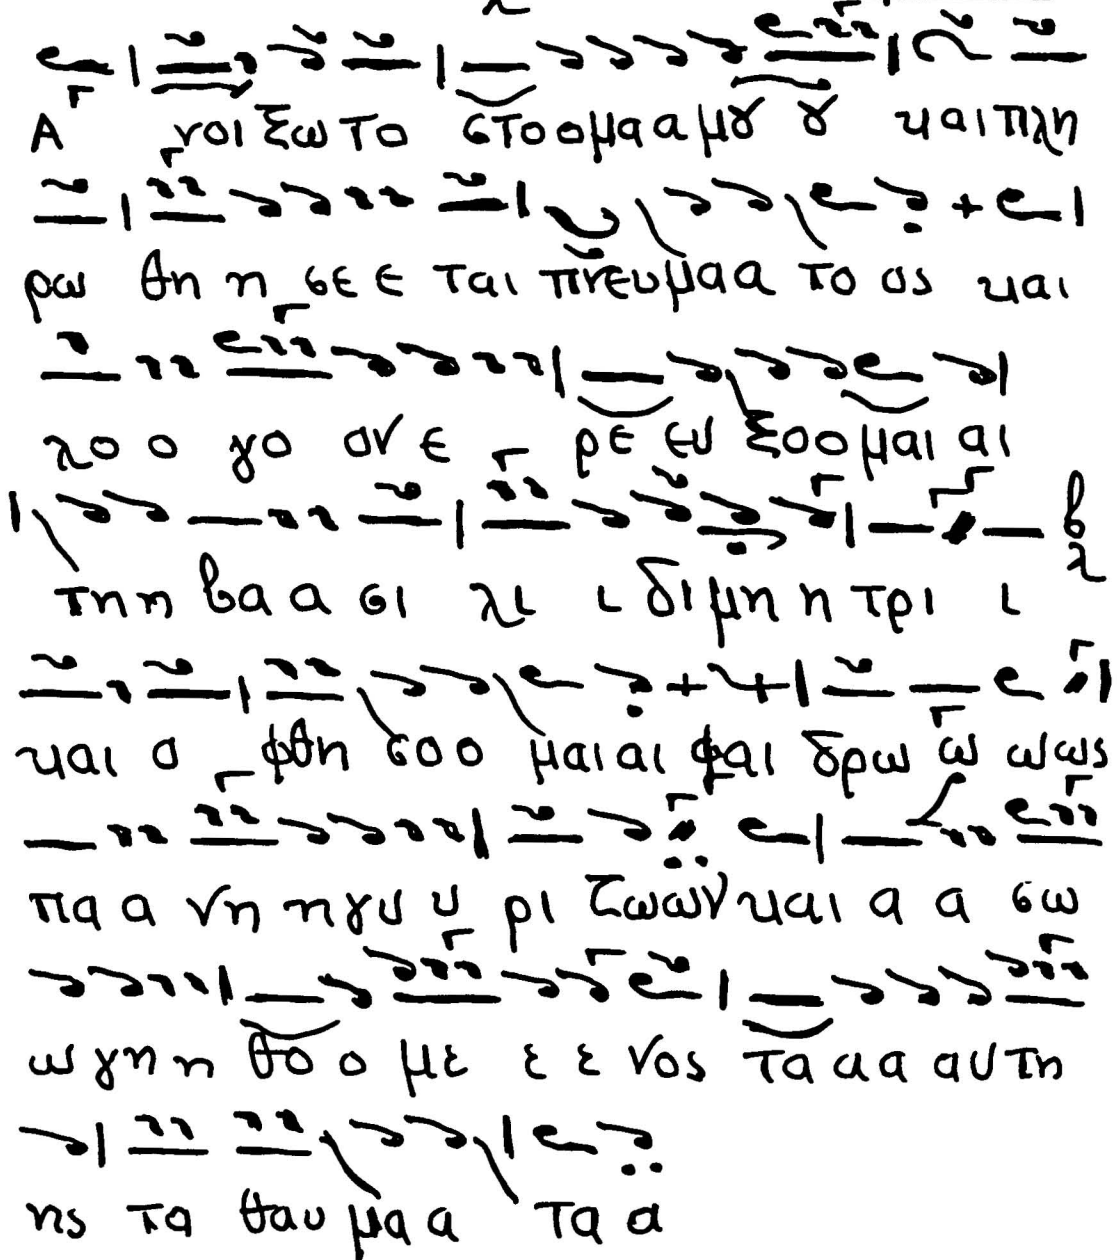 Α νοι ξω το στο ο μα α μȣ ȣ και πλη
ρω θη η σε ε ται πνευμα α το ος και
λο ο γο ον ε ρε ευ ξο ο μαι αι
τη η βα α σι λι ι δι μη η τρι ι
και ο φθη σο ο μαι αι φαι δρω ω ω ως
πα α νη η γυ υ ρι ζω ων και α α σω
ω γη η θο ο με ε ε νος τα α α αυ τη
ης τα θαυ μα α τα α